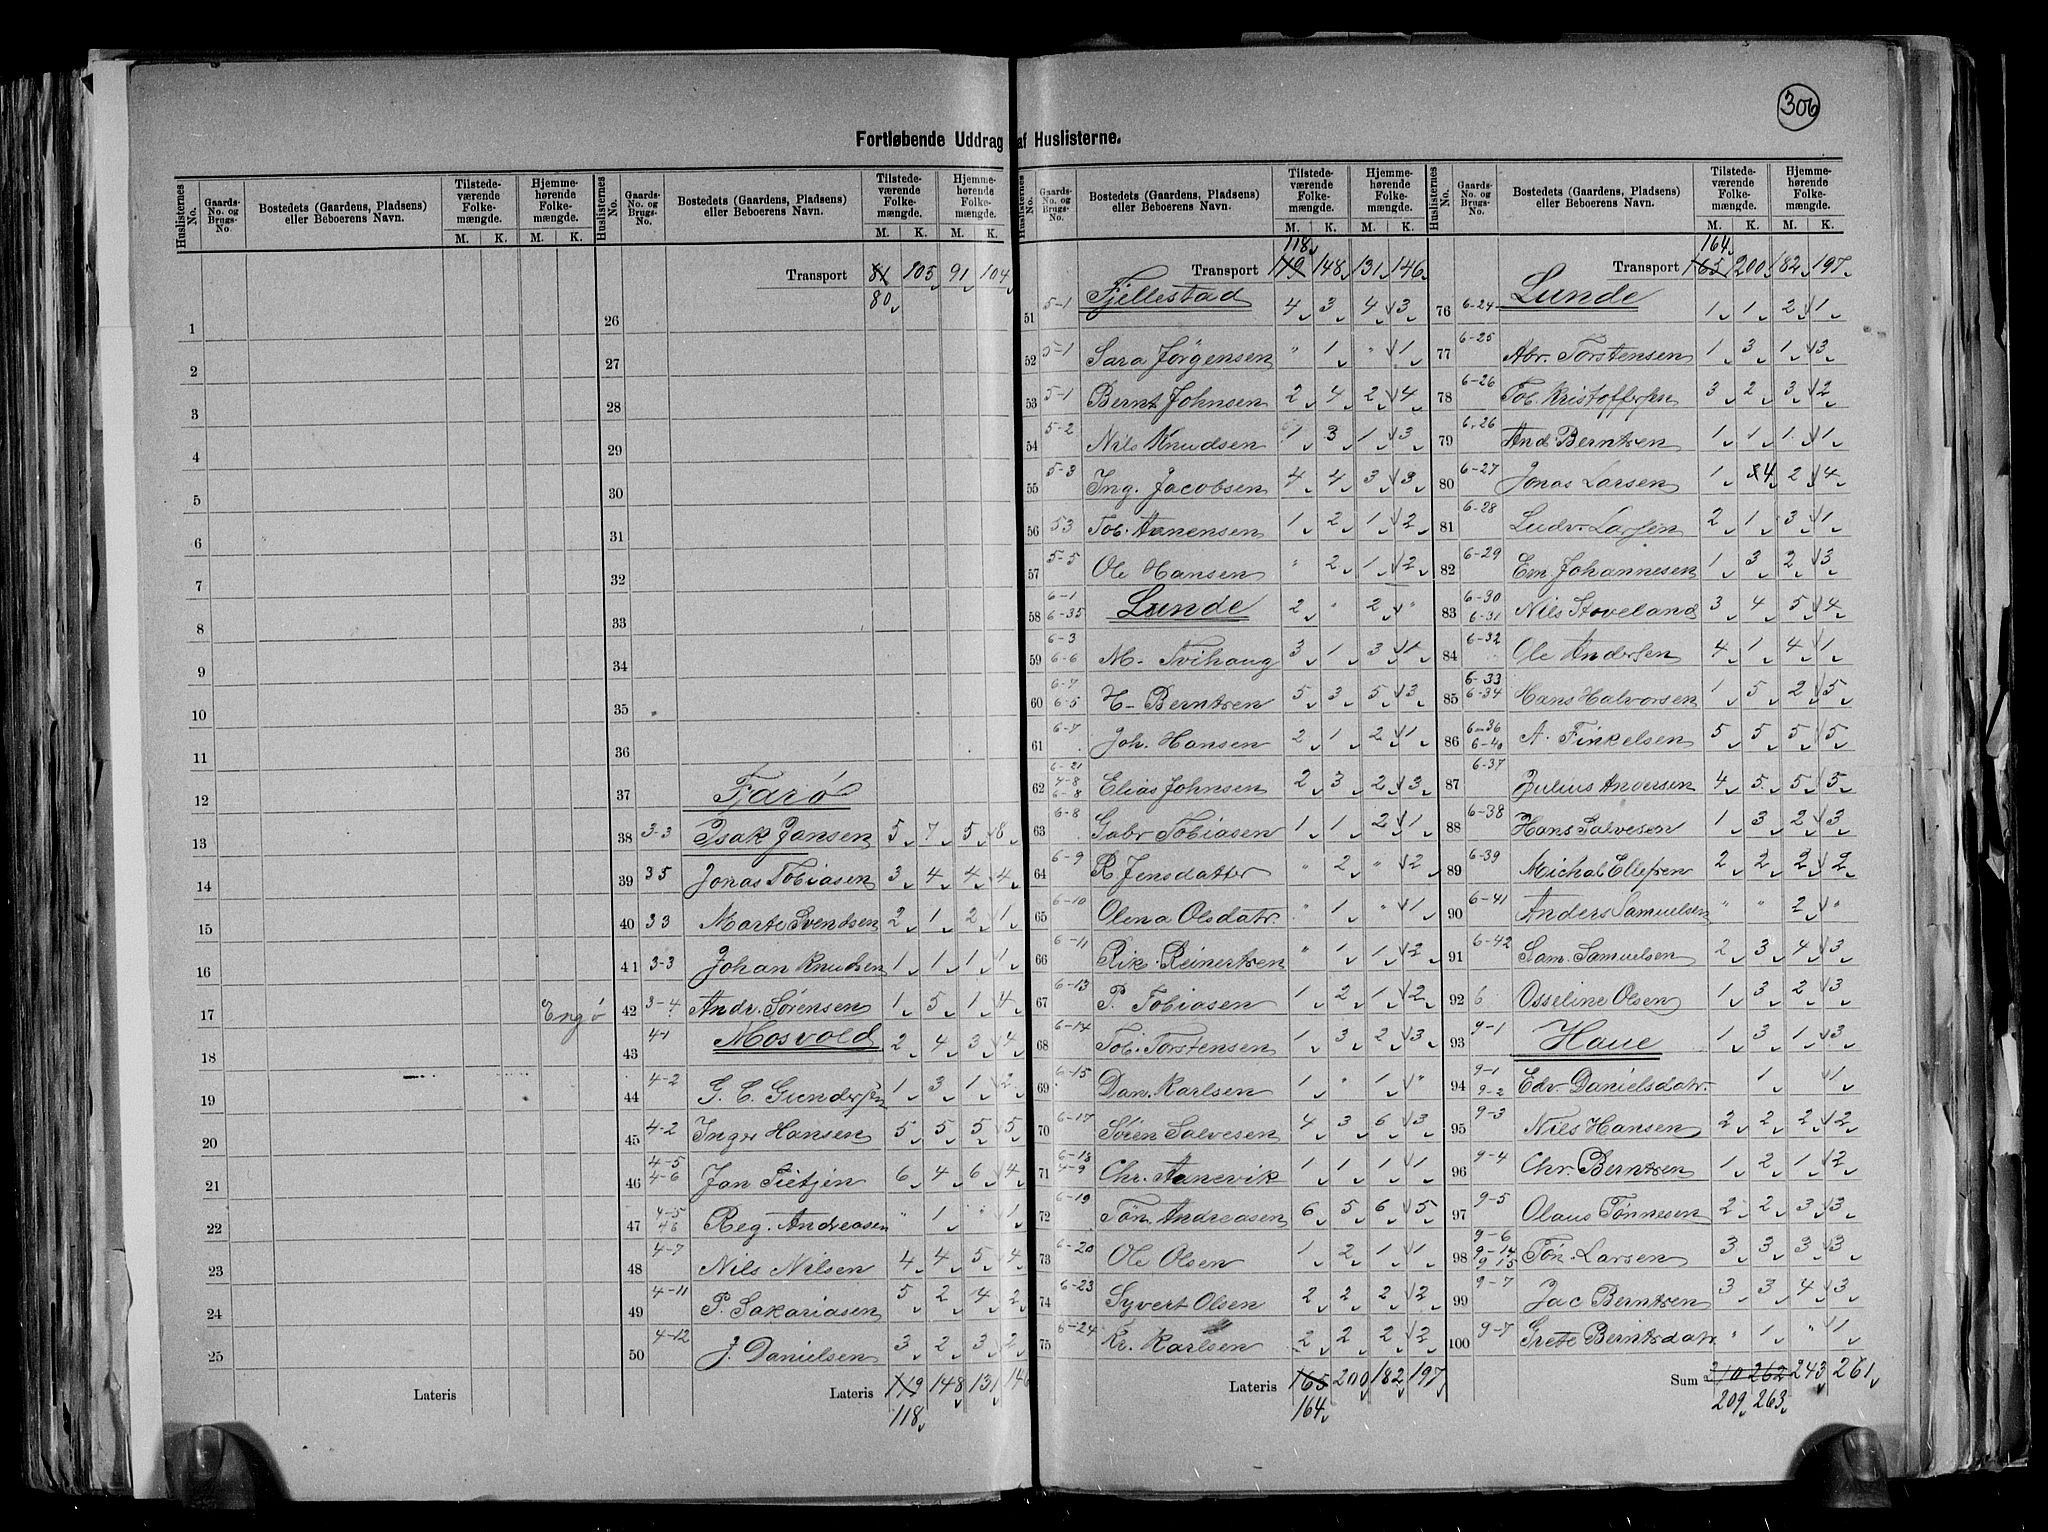 306
Fortløbende Uddrag af Huslisterne.
Huslisternes No. Gaards-No. og Brugs-No. Bostedets (Gaardens, Pladsens) eller Beboerens Navn. Tilstedeværende Folkemængde. M. K. Hjemmehørende Folkemængde. M. K.
1
2
3
4
5
6
7
8
9
10
11
12
13
14
15
16
17 Engø
18
19
20
21
22
23
24
25
Lateris
Huslisternes No. Gaards-No. og Brugs-No. Bostedets (Gaardens, Pladsens) eller Beboerens Navn. Tilstedeværende Folkemængde. M. K. Hjemmehørende Folkemængde. M. K.
Transport 81 105 91 104
80
26
27
28
29
30
31
32
33
34
35
36
37 Farø
38 3-3 Isak Jansen 5 7 5 8
39 35 Jonas Tobiasen 3 4 4 4
40 33 Marte Svendsen 2 1 2 1
41 3-3 Johan Knudsen 1 1 1 1
42 3-4 Andr. Sørensen 1 5 1 4
43 4-1 Mosvold 2 4 3 4
44 4-2 G. C. Gundersen 1 3 1 2
45 4-2 Inger Hansen 5 5 5 5
46 4-5 4-6 Jan Tietjen 6 4 6 4
47 4-5 46 Reg. Andreasen " 1 " 1
48 4-7 Nils Nilsen 4 4 5 4
49 4-11 P. Sakariasen 5 2 4 2
50 4-12 J. Danielsen 3 2 3 2
Lateris 119 148 131 146
118
Huslisternes No. Gaards-No. og Brugs-No. Bostedets (Gaardens, Pladsens) eller Beboerens Navn. Tilstedeværende Folkemængde. M. K. Hjemmehørende Folkemængde. M. K.
118
Transport 119 148 131 146
51 5-1 Fjellestad 4 3 4 3
52 5-1 Sara Jørgensen " 1 " 1
53 5-1 Bernt Johnsen 2 4 2 4
54 5-2 Nils Knudsen 1 3 1 3
55 5-3 Ing. Jacobsen 4 4 3 3
56 53 Tob. Aanensen 1 2 1 2
57 5-5 Ole Hansen " 2 1 2
58 6-1 6-35 Lunde 2 " 2 "
59 6-3 6-6 M. Tvihaug 3 1 3 1
60 6-7 6-5 H. Berntsen 5 3 5 3
61 6-7 Joh. Hansen 2 1 2 1
62 6-21 4-8 6-8 Elias Johnsen 2 3 2 3
63 6-8 Gabr Tobiasen 1 1 2 1
64 6-9 R. Jensdatter " 2 " 2
65 6-10 Olena Olsdatr. " 1 " 1
66 6-11 Rik. Reinertsen " 1 1 2
67 6-13 P. Tobiasen 1 2 1 2
68 6-14 Tob. Torstensen 1 3 2 3
69 6-15 Dan. Karlsen 1 " 1 "
70 6-17 Søren Salvesen 4 3 6 3
71 6-18 4-9 Chr. Aanevik 1 1 1 1
72 6-19 Tøn. Andreasen 6 5 6 5
73 6-20 Ole Olsen 1 2 1 1
74 6-23 Syvert Olsen 2 2 2 2
75 6-24 Kr. Karlsen 2 2 2 2
Lateris 165 200 182 197
164
Huslisternes No. Gaards-No. og Brugs-No. Bostedets (Gaardens, Pladsens) eller Beboerens Navn. Tilstedeværende Folkemængde. M. K. Hjemmehørende Folkemængde. M. K.
164
Transport 165 200 182 197
76 6-24 Lunde 1 1 2 1
77 6-25 Abr. Torstensen 1 3 1 3
78 6-26 Tob. Kristoffersen 3 2 3 2
79 6-26 And. Berntsen 1 1 1 1
80 6-27 Jonas Larsen 1 4 2 4
81 6-28 Ludv. Larsen 2 1 3 1
82 6-29 Em Johannesen 1 3 2 3
83 6-30 6-31 Nils Stoveland 3 4 5 4
84 6-32 Ole Andersen 4 1 4 1
85 6-33 6-34 Hans Halvorsen 1 5 2 5
86 6-36 6-40 A. Finkelsen 5 5 5 5
87 6-37 Julius Andersen 4 5 5 5
88 6-38 Hans Salvesen 1 3 2 3
89 6-39 Michal Ellefsen 2 2 2 2
90 6-41 Anders Samuelsen " " 2 "
91 6-42 Sam. Samuelsen 2 3 4 3
92 6 Osseline Olsen 1 3 2 3
93 9-1 Haue 1 3 1 3
94 9-1 9-2 Edv. Danielsdatr. 1 1
95 9-3 Nils Hansen 2 2 2 2
96 9-4 Chr. Berntsen 1 2 1 2
97 9-5 Olaus Tønnesen 2 2 3 3
98 9-6 9-14 9 15 Tøn. Larsen 3 3 3 3
99 9-7 Jac Berntsen 3 3 4 3
100 9-7 Grete Berntsdatr. " 1 " 1
Sum 210 262 243 261
209 263